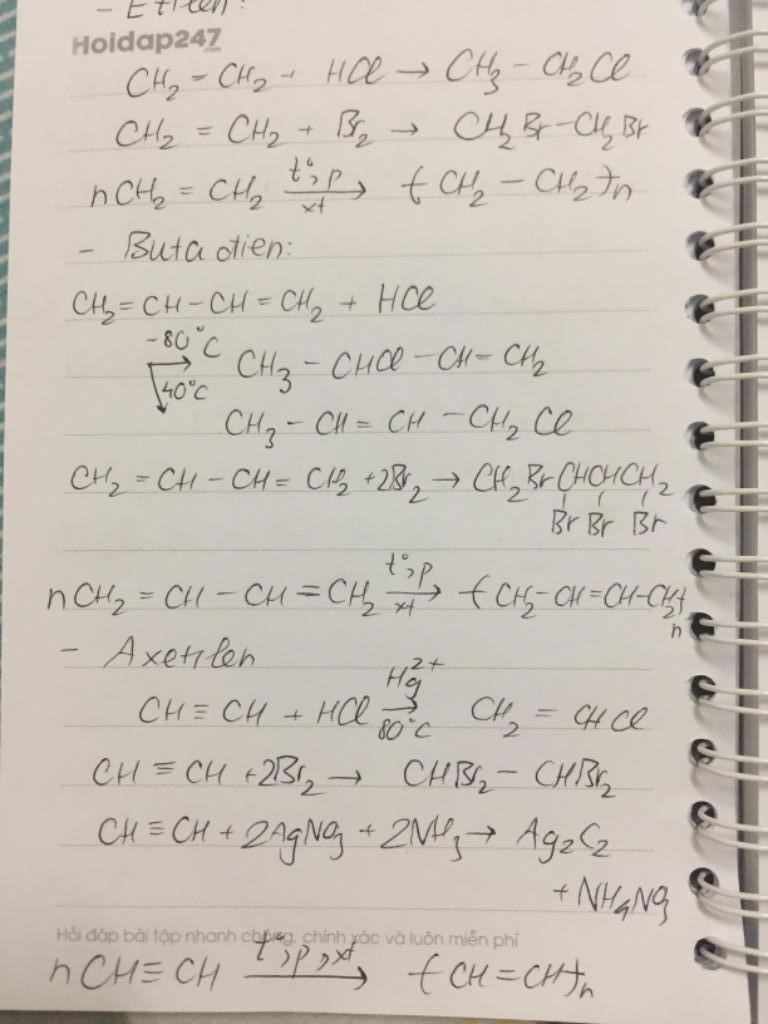 - Etilen:
Hoidap247
CH₂ = CH₂ + HCl → CH₃ - CH₂Cl
CH₂ = CH₂ + Br₂ → CH₂Br-CH₂Br
nCH₂ = CH₂ t°,p xt → (CH₂ - CH₂)n
- Butadien:
CH₂=CH-CH=CH₂ + HCl
-80°C → CH₃ - CHCl - CH=CH₂
40°C CH₃ - CH = CH - CH₂Cl
CH₂ = CH - CH = CH₂ + 2Br₂ → CH₂BrCHCHCH₂
Br Br Br
nCH₂ = CH - CH = CH₂ t°,p xt → (CH₂-CH=CH-CH₂)n
- Axetilen
CH ≡ CH + HCl Hg²⁺ → 80°C CH₂ = CHCl
CH ≡ CH + 2Br₂ → CHBr₂ - CHBr₂
CH ≡ CH + 2AgNO₃ + 2NH₃ → Ag₂C₂
+ NH₄NO₃
Hỏi đáp bài tập nhanh chóng, chính xác và luôn miễn phí
nCH≡CH t°,p,xt → (CH = CH)n